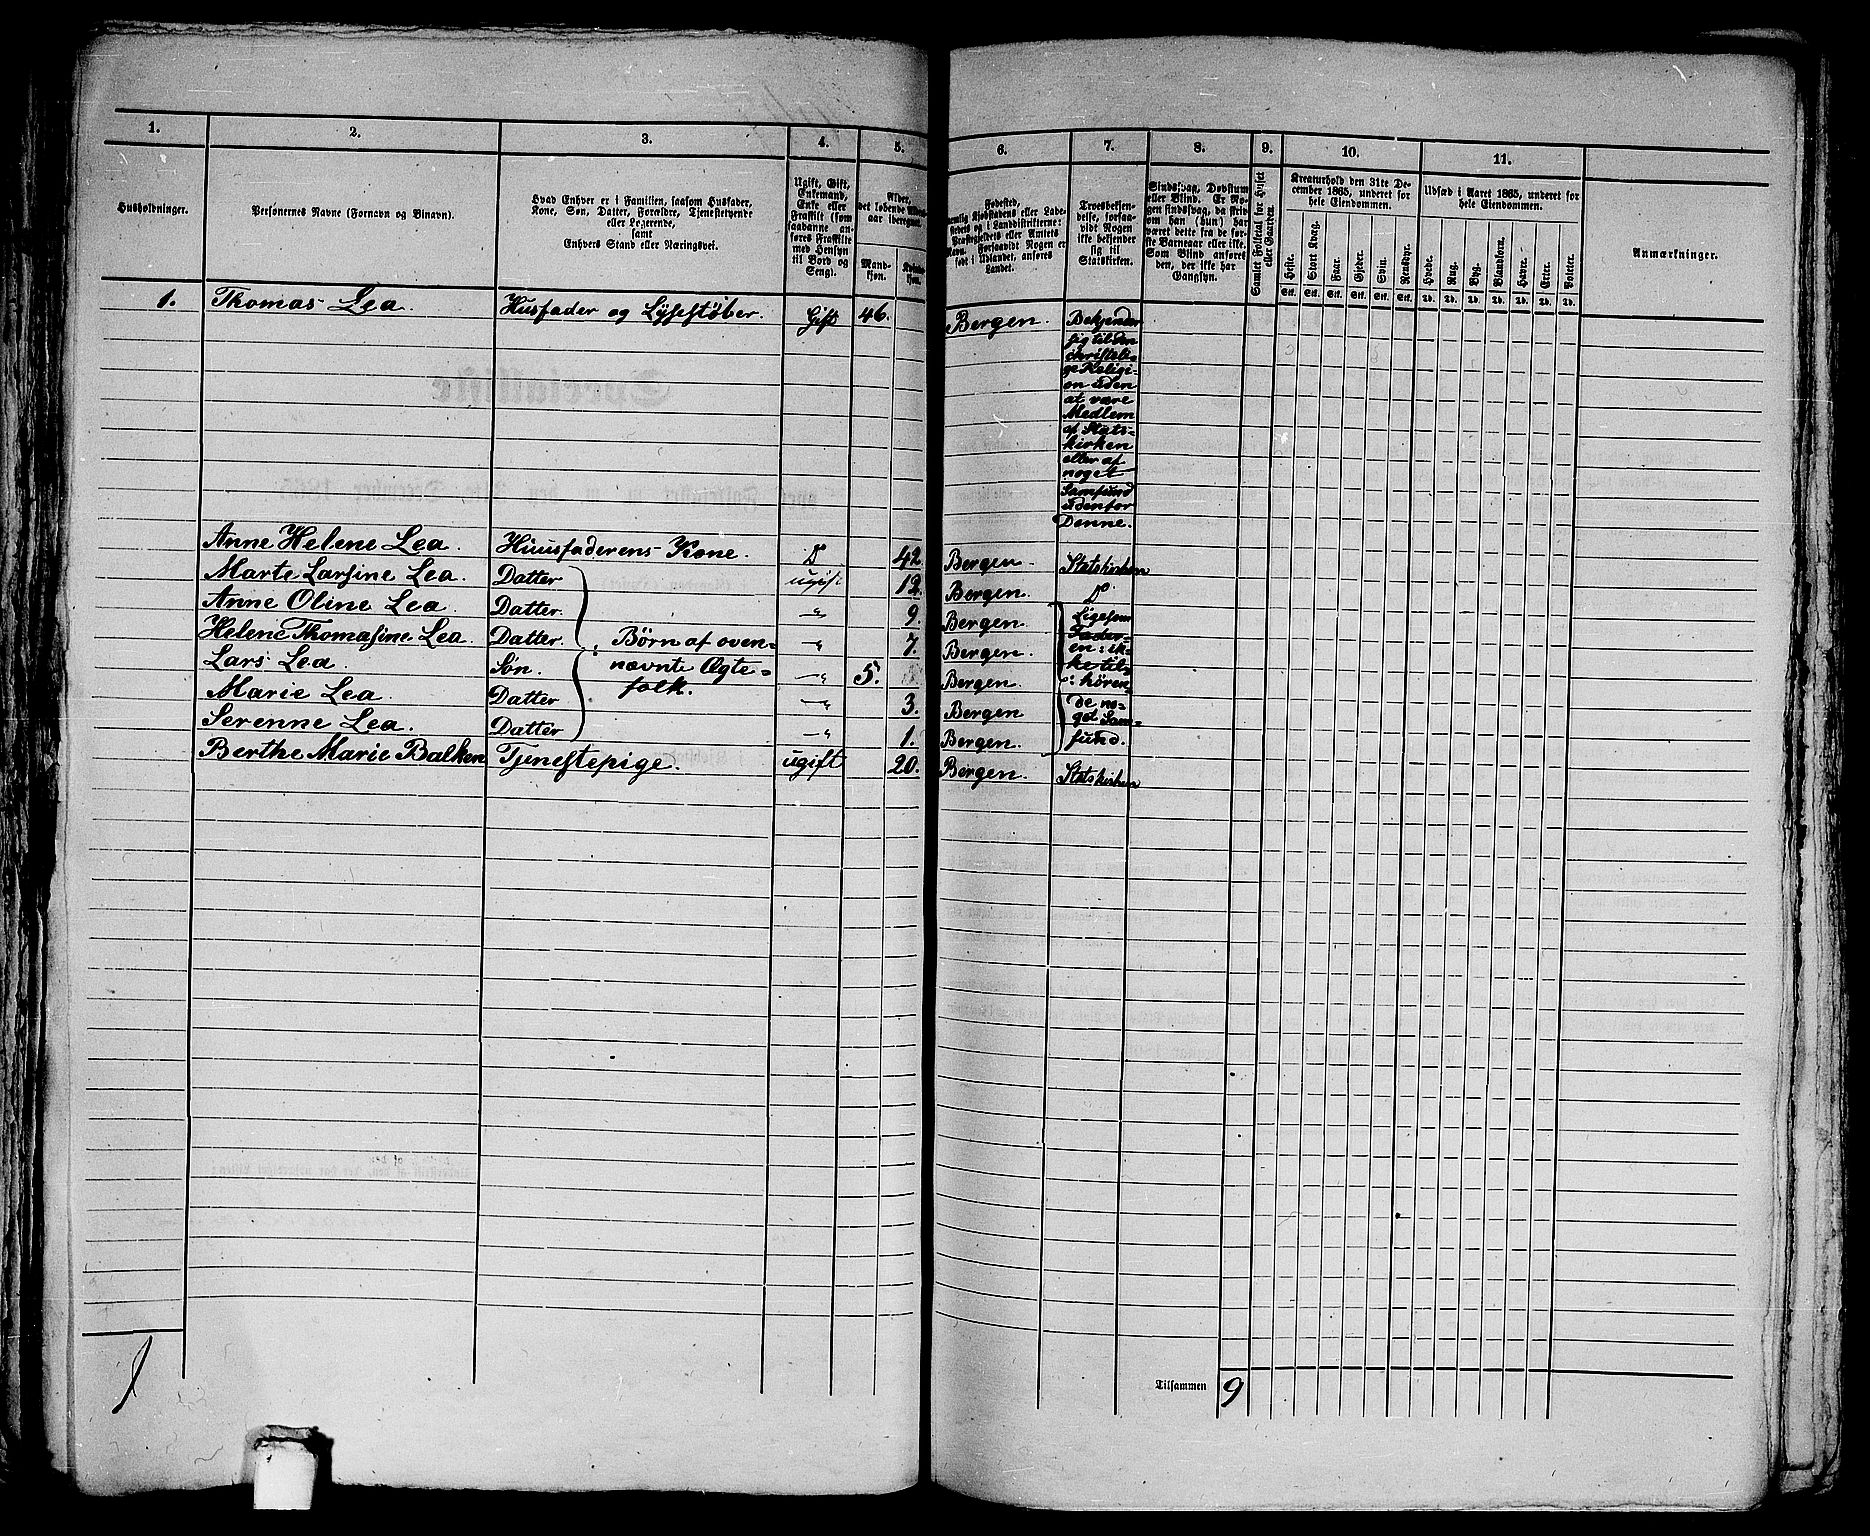 1. 2. 3. 4. 5. 6. 7. 8. 9. 10. 11.
Husholdninger.
Personernes Navne (Fornavn og Binavn).
Hvad Enhver er i Familien, saasom Husfader,
Kone, Søn, Datter, Forældre, Tjenestetyende
eller Logerende,
samt
Enhvers Stand eller Næringsvei.
Ugift, Gift,
Enkemand,
Enke eller
Fraskilt (som
saadanne an-
føres Fraskilte
med Hensyn
til Bord og
Seng).
Alder,
det løbende
aar iberegnet.
Mand-
kjøn.
Fødested,
Navn.
Forsaavidt Nogen er
født i Udlandet, anføres
Landet.
Troesbekjen-
delse, forsaa-
vidt Nogen
ikke bekjender
sig til
Statskirken.
Sindssvag, Døvstum
eller Blind. Er No-
gen sindssvag, da skrives
om han (hun) har
været dette fra de før-
ste Barneaar eller ikke.
Som Blind anføres
den, der ikke har
Gangsyn.
Samlet Folketal for Huset
eller Gaarden.
Kreaturhold den 31te De-
cember 1865, underet for
hele Eiendommen.
Heste. Stort Kvæg. Faar. Gjeder. Svin. Rensdyr.
Stk. Stk. Stk. Stk. Stk. Stk.
Udsæd i Aaret 1865, underet for
hele Eiendommen.
Hvede. Rug. Byg. Blandkorn. Havre. Erter. Poteter.
Td. Td. Td. Td. Td. Td. Td.
Anmærkninger.
1. Thomas Lea Husfader og Lysestøber. Gift 46. Bergen. Bekjender
sig til den
christeli-
ge Religi-
on uden
at være
Medlem
af Stats-
kirken
eller af
noget
Samfund
udenfor
Denne.
Anne Helene Lea. Huusfaderens Kone. D 42. Bergen. Statskirken
Marte Larsine Lea. Datter ugift 12. Bergen. D
Anne Oline Lea. Datter. -"- 9. Bergen. Ligesom
Helene Thomasine Lea. Datter. -"- 7. Bergen.
Lars Lea. Søn. -"- 5. Bergen.
Marie Lea. Datter -"- 3. Bergen
Serenne Lea. Datter -"- 1. Bergen.
Børn af oven-
nævnte Ægte-
folk.
Fader-
en: ik-
ke til-
: høren-
de no-
get Sam-
fund.
Berthe Marie Balken Tjenestepige. ugift 20. Bergen. Statskirken
1
Tilsammen 9